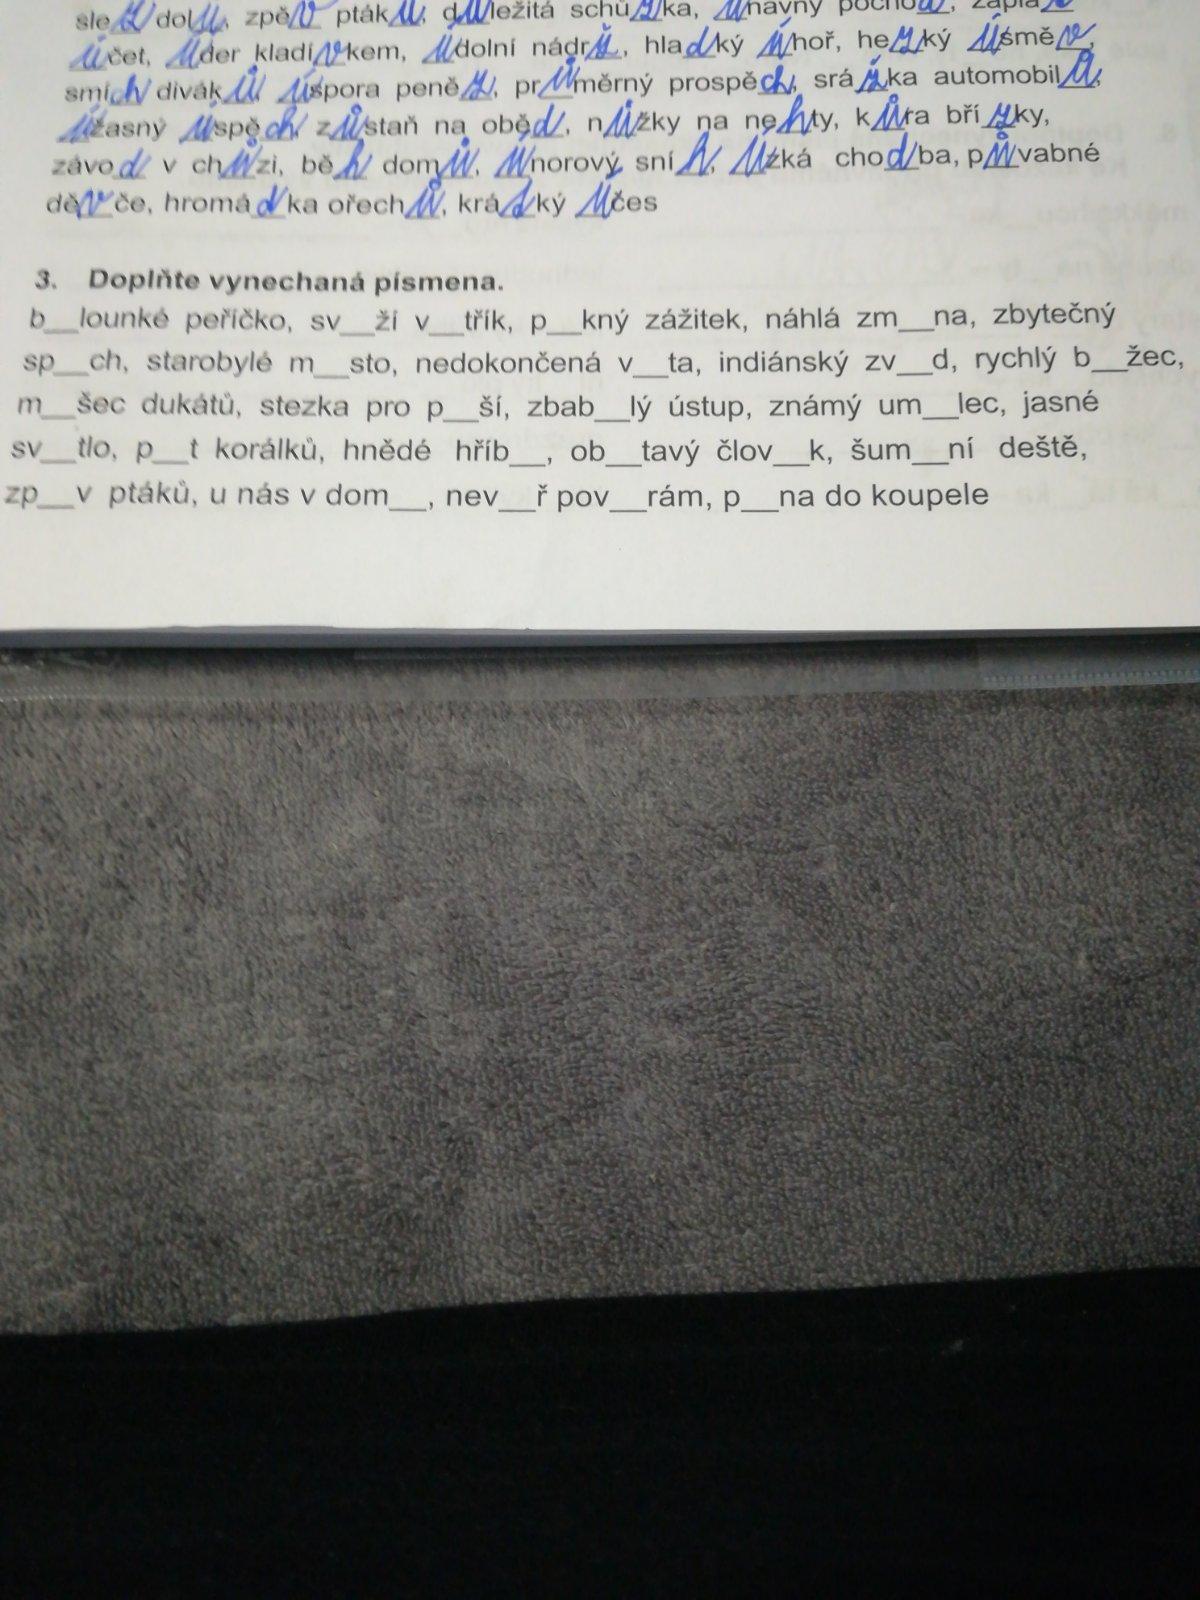 slez dolů, zpěv ptáků, důležitá schůzka, únavný pochod,
účet, úder kladívkem, údolní nádrž, hladký úhoř, hezký úsměv,
smích diváků, úspora peněz, průměrný prospěch, srážka automobilů,
úžasný úspěch, zůstaň na oběd, nůžky na nehty, kůra břízky,
závod v chůzi, běh domů, únorový sníh, úzká chodba, půvabné
děvče, hromádka ořechů, krátký účes
3. Doplňte vynechaná písmena.
b__lounké peříčko, sv__ží v__třík, p__kný zážitek, náhlá zm__na, zbytečný
sp__ch, starobylé m__sto, nedokončená v__ta, indiánský zv__d, rychlý b__žec,
m__šec dukátů, stezka pro p__ší, zbab__lý ústup, známý um__lec, jasné
sv__tlo, p__t korálků, hnědé hříb__, ob__tavý člov__k, šum__ní deště,
zp__v ptáků, u nás v dom__, nev__ř pov__rám, p__na do koupele